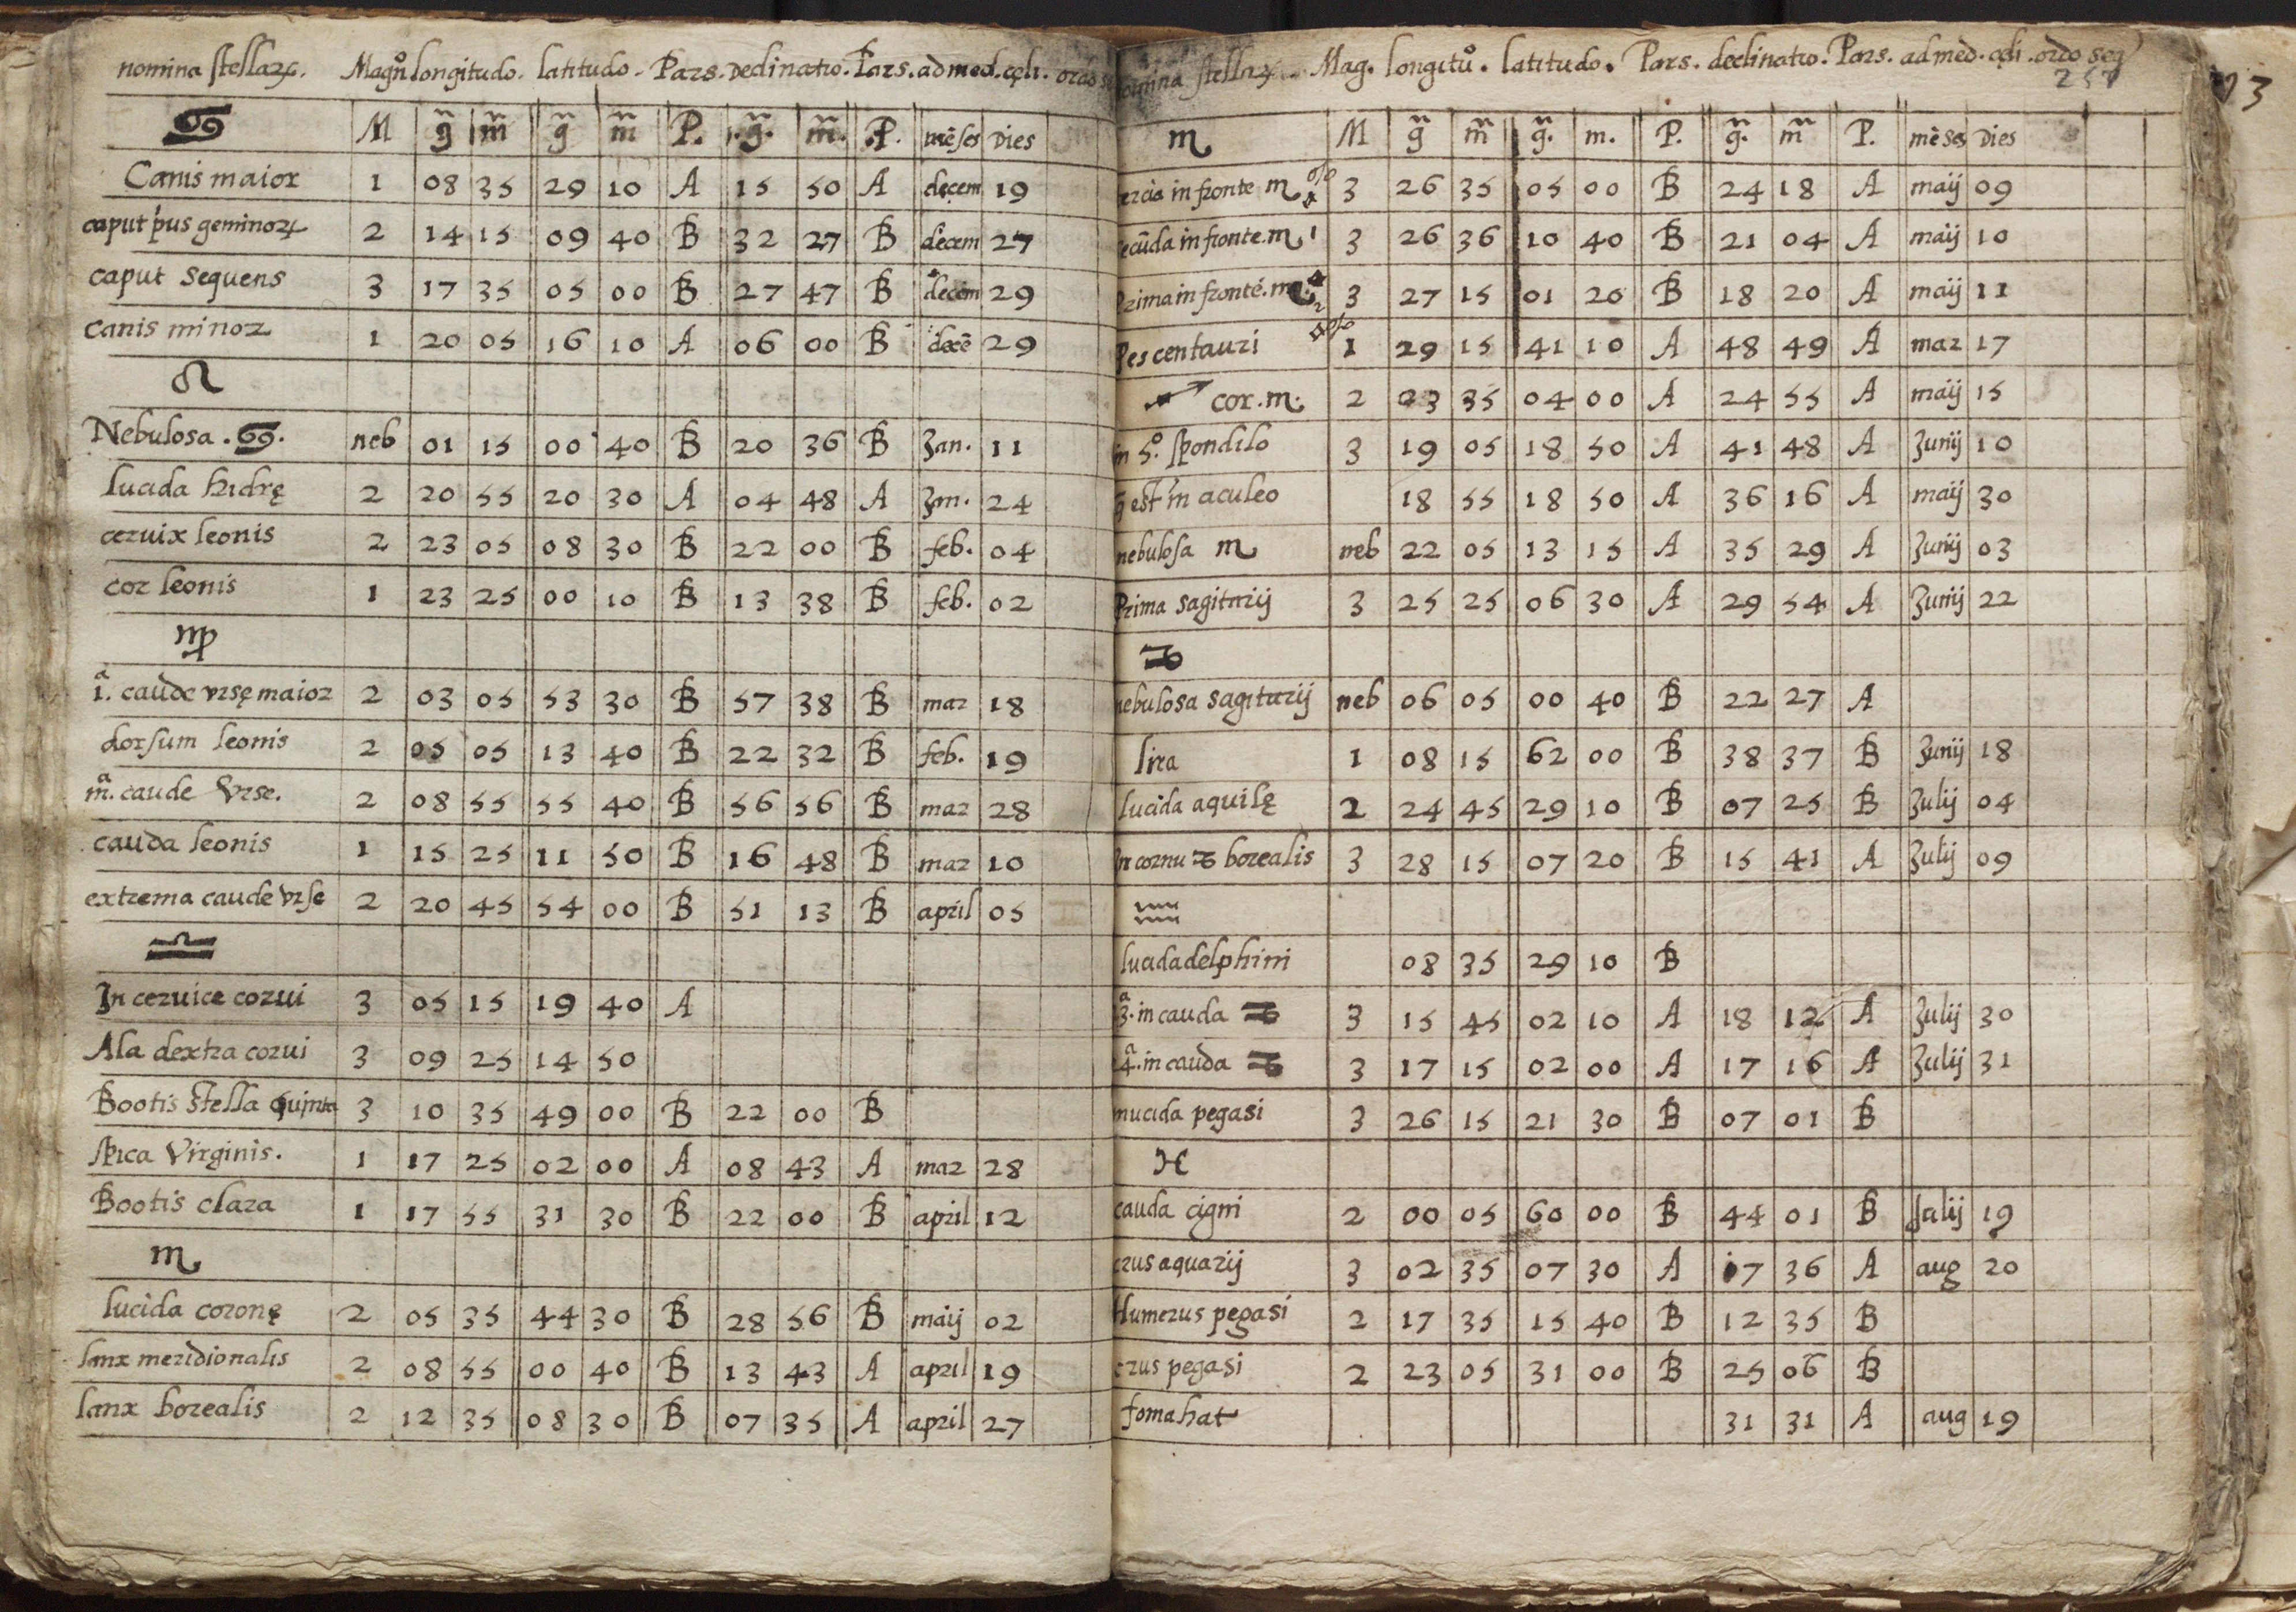 nomina stellaꝝ. Magnͦ longitudo. latitudo. Pars. Declinatio. Pars. ad med. cęli. ordo
♋ M g̃ m̃ g̃ m̃ P. g̃. m̃. P. mēses Dies
Canis maior 1 08 35 29 10 A 15 50 A decem 19
caput p̍us geminoꝝ 2 14 15 09 40 B 32 27 B decem 27
caput sequens 3 17 35 05 00 B 27 47 B decem 29
canis minor 1 20 05 16 10 A 06 00 B decē 29
♌
Nebulosa .♋. neb 01 15 00 40 B 20 36 B Jan. 11
lucida hidrę 2 20 55 20 30 A 04 48 A Jan. 24
ceruix leonis 2 23 05 08 30 B 22 00 B feb. 04
cor leonis 1 23 25 00 10 B 13 38 B feb. 02
♍
1.ª caude vrsę maior 2 03 05 53 30 B 57 38 B mar 18
dorsum leonis 2 05 05 13 40 B 22 32 B feb. 19
m.ª caude Vrse. 2 08 55 55 40 B 56 56 B mar 28
cauda leonis 1 15 25 11 50 B 16 48 B mar 10
extrema caude vrse 2 20 45 54 00 B 51 13 B april 05
♎
In ceruice corui 3 05 15 19 40 A
Ala dextra corui 3 09 25 14 50
Bootis stella quinta 3 10 35 49 00 B 22 00 B
spica Virginis. 1 17 25 02 00 A 08 43 A mar 28
Bootis clara 1 17 55 31 30 B 22 00 B april 12
♏
lucida coronę 2 05 35 44 30 B 28 56 B maij 02
lanx meridionalis 2 08 55 00 40 B 13 43 A april 19
lanx borealis 2 12 35 08 30 B 07 35 A april 27
nomina stellaꝝ Mag. longitů. latitudo. Pars. declinatio. Pars. ad med. cęli. ordo seq
257
3
♏ M g̃ m̃ g̃. m. P. g̃. m̃ P. mēses Dies
tercia in fronte ♏ 3 26 35 05 00 B 24 18 A maij 09
secūda in fronte. ♏ 1 3 26 36 10 40 B 21 04 A maij 10
Prima in fronte. ♏ 3 27 15 01 20 B 18 20 A maij 11
Pes centauri 1 29 15 41 10 A 48 49 A mar 17
♐ cor. ♏. 2 03 35 04 00 A 24 55 A maij 15
in 5.º spondilo 3 19 05 18 50 A 41 48 A Junij 10
q̄ est in aculeo 18 55 18 50 A 36 16 A maij 30
nebulosa ♏ neb 22 05 13 15 A 35 29 A Junij 03
Prima sagitarij 3 25 25 06 30 A 29 54 A Junij 22
♑
nebulosa sagitarij neb 06 05 00 40 B 22 27 A
lira 1 08 15 62 00 B 38 37 B Junij 18
lucida aquilę 2 24 45 29 10 B 07 25 B Julij 04
In cornu ♑ borealis 3 28 15 07 20 B 15 41 A Julij 09
♒
lucida delphini 08 35 29 10 B
3.ª in cauda ♑ 3 15 45 02 10 A 18 12 A Julij 30
4.ª in cauda ♑ 3 17 15 02 00 A 17 16 A Julij 31
mucida pegasi 3 26 15 21 30 B 07 01 B
♓
cauda cigni 2 00 05 60 00 B 44 01 B Julij 19
crus aquarij 3 02 35 07 30 A 17 36 A aug 20
Humerus pegasi 2 17 35 15 40 B 12 35 B
crus pegasi 2 23 05 31 00 B 25 06 B
fomahat 31 31 A aug 19